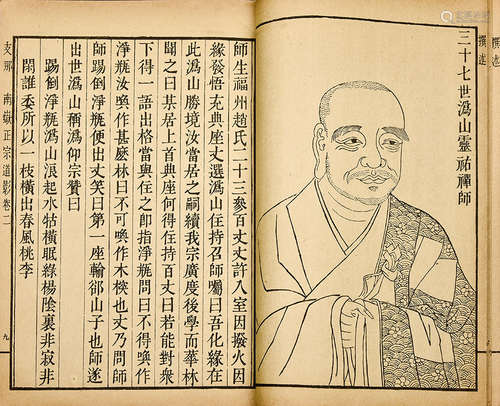 撰述
撰述
三十七世溈山靈祐禪師
師生福州趙氏二十三參百丈丈許入室因撥火因
緣發悟充典座丈選溈山住持召師囑曰吾化緣在
此溈山勝境汝當居之嗣續我宗廣度後學而華林
聞之曰某居上首典座何得住持百丈曰若能對衆
下得一語出格當與住之即指淨瓶問曰不得喚作
淨瓶汝喚作甚麽林曰不可喚作木𣔻也丈乃問師
師踢倒淨瓶便出丈笑曰第一座輸卻山子也師遂
出世溈山稱溈仰宗贊曰
踢倒淨瓶溈山浪起水牯橫眠綠楊陰裏非寂非
閒誰委所以一枝橫出春風桃李
支那
南嶽正宗道影卷二
九